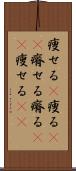 痩せる 痩る
瘠せる瘠る
瘦せる